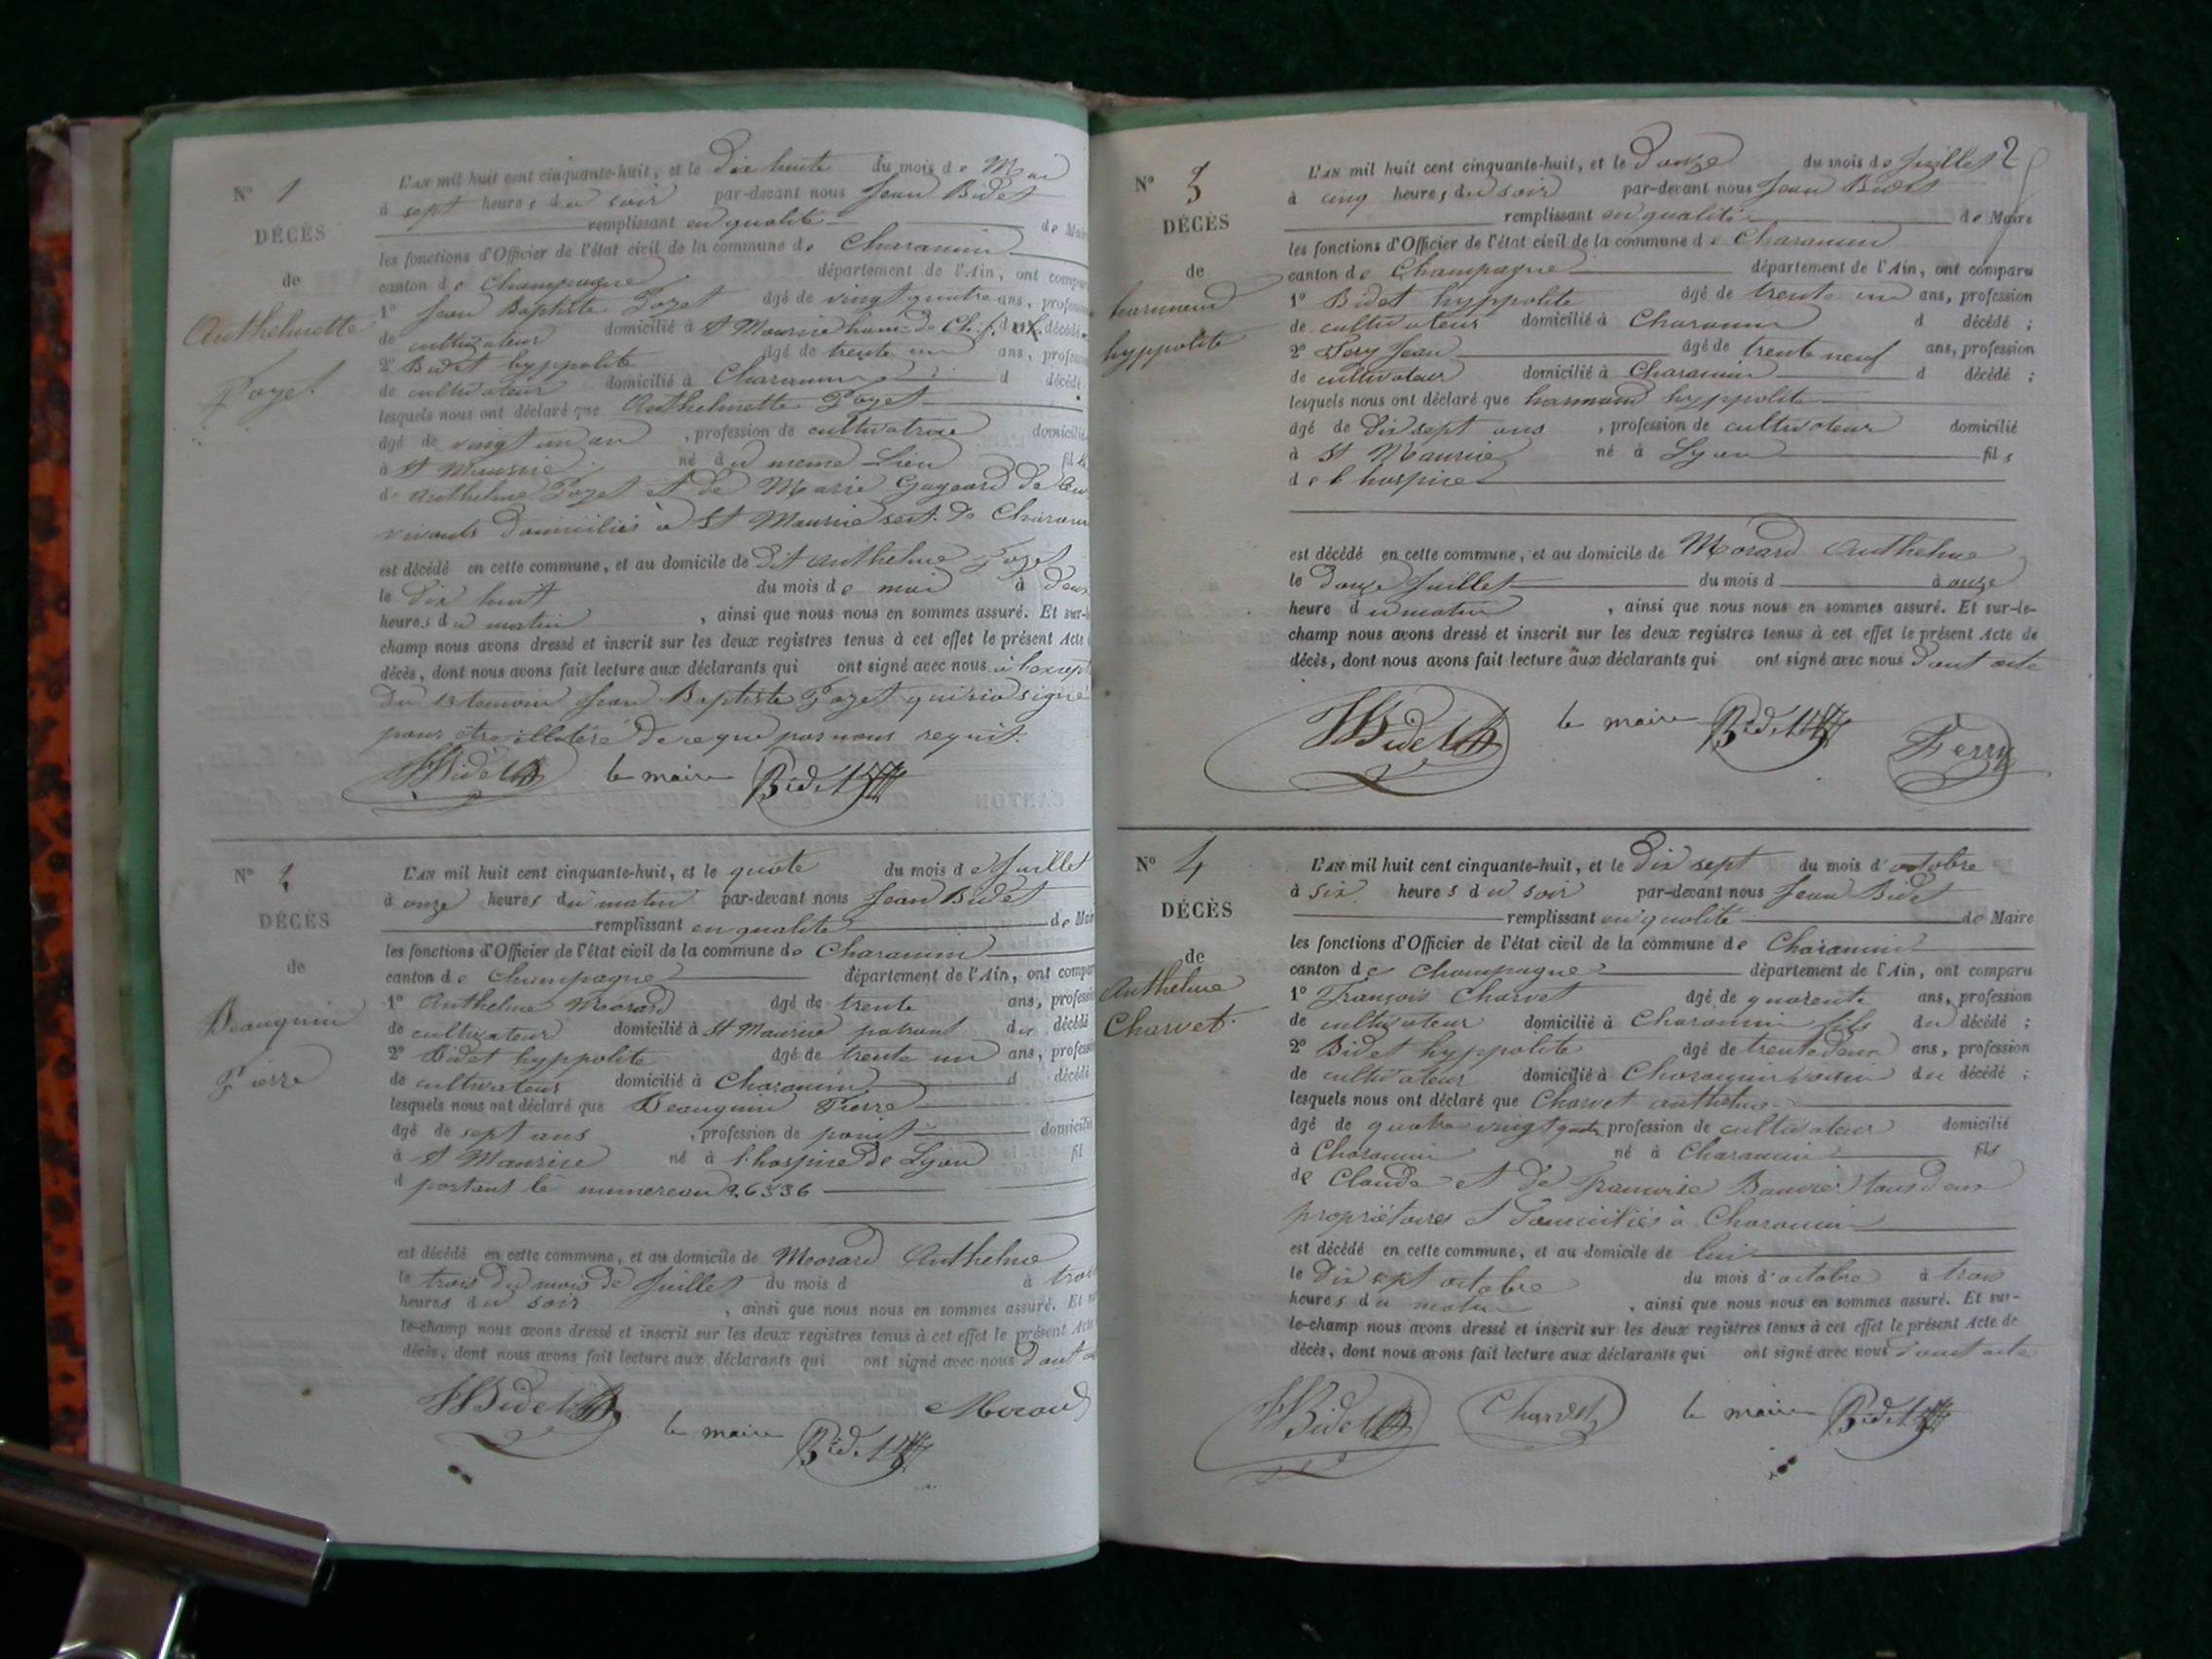 N° 1
DÉCÈS
de
Anthelmette
Pozet
L'AN mil huit cent cinquante-huit, et le dix huite du mois de Mai
à sept heures du soir par-devant nous Jean Bidet
remplissant en qualité de Maire
les fonctions d'Officier de l'état civil de la commune de Charancin
canton de Champagne département de l'Ain, ont compar
1° Jean Baptiste Pozet âgé de vingt quatre ans, profession
de cultivateur domicilié à St Maurice ham. de Ch. décédé
2° Bidet hyppolite âgé de trente un ans, profess
de cultivateur domicilié à Charancin d décédé
lesquels nous ont déclaré que Anthelmette Pozet
âgé de vingt un an , profession de cultivatrice domicilié
à St Maurice né à u meme Lieu fil
de Anthelme Pozet et de Marie
vivants domiciliés à St Maurice sect. de Charan
est décédé en cette commune, et au domicile de dit Anthelme Pozet
le dix huit du mois de mai à deux
heures du matin , ainsi que nous nous en sommes assuré. Et sur-le-
champ nous avons dressé et inscrit sur les deux registres tenus à cet effet le présent Acte
décès, dont nous avons fait lecture aux déclarants qui ont signé avec nous à l'except
du temoin Jean Baptiste Pozet qui n'a signé
pour être illétéré de ce que par nous requit.
HBidet le maire Bidet
N° 2
DÉCÈS
de
Beauquin
Pierre
L'AN mil huit cent cinquante-huit, et le quate du mois de Juillet
à onze heures du matin par-devant nous Jean Bidet
remplissant en qualité de Mair
les fonctions d'Officier de l'état civil de la commune de Charancin
canton de Champagne département de l'Ain, ont compar
1° Anthelme Morard âgé de trente ans, profession
de cultivateur domicilié à St Maurice du décédé
2° Bidet hyppolite âgé de trente un ans, profess
de cultivateur domicilié à Charancin d décédé
lesquels nous ont déclaré que Beauquin Pierre
âgé de sept ans , profession de point domicilié
à St Maurice né à l'hospice de Lyon fil
d portant le numereau 26336
est décédé en cette commune, et au domicile de Morard Anthelme
le trois du mois de Juillet du mois d à trois
heures du soir , ainsi que nous nous en sommes assuré. Et sur-
le-champ nous avons dressé et inscrit sur les deux registres tenus à cet effet le présent Acte
décès, dont nous avons fait lecture aux déclarants qui ont signé avec nous dont
HBidet le maire Bidet Morard
2
N° 3
DÉCÈS
de
harmand
hyppolite
L'AN mil huit cent cinquante-huit, et le douze du mois de Juillet
à cinq heures du soir par-devant nous Jean Bidet
remplissant en qualité de Maire
les fonctions d'Officier de l'état civil de la commune de Charancin
canton de Champagne département de l'Ain, ont comparu
1° Bidet hyppolite âgé de trente un ans, profession
de cultivateur domicilié à Charancin d décédé ;
2° Fery Jean âgé de trente neuf ans, profession
de cultivateur domicilié à Charancin d décédé ;
lesquels nous ont déclaré que harmand hyppolite
âgé de dix sept ans , profession de cultivateur domicilié
à St Maurice né à Lyon fils
de l'hospice
est décédé en cette commune, et au domicile de Morard Anthelme
le douze Juillet du mois d à onze
heure du matin , ainsi que nous nous en sommes assuré. Et sur-le-
champ nous avons dressé et inscrit sur les deux registres tenus à cet effet le présent Acte de
décès, dont nous avons fait lecture aux déclarants qui ont signé avec nous dont acte
HBidet le maire Bidet Ferry
N° 4
DÉCÈS
de
Anthelme
Charvet
L'AN mil huit cent cinquante-huit, et le dix sept du mois d'octobre
à six heures du soir par-devant nous Jean Bidet
remplissant en qualité de Maire
les fonctions d'Officier de l'état civil de la commune de Charancin
canton de Champagne département de l'Ain, ont comparu
1° François Charvet âgé de quarente ans, profession
de cultivateur domicilié à Charancin fils du décédé ;
2° Bidet hyppolite âgé de trente deux ans, profession
de cultivateur domicilié à Charancin voisin du décédé ;
lesquels nous ont déclaré que Charvet anthelme
âgé de quatre vingt quatre profession de cultivateur domicilié
à Charancin né à Charancin fils
de Claude et de francoise tous deux
propriétaires et domiciliés à Charancin
est décédé en cette commune, et au domicile de lui
le dix sept octobre du mois d'octobre à trois
heures du matin , ainsi que nous nous en sommes assuré. Et sur-
le-champ nous avons dressé et inscrit sur les deux registres tenus à cet effet le présent Acte de
décès, dont nous avons fait lecture aux déclarants qui ont signé avec nous dont acte
HBidet Charvet le maire Bidet